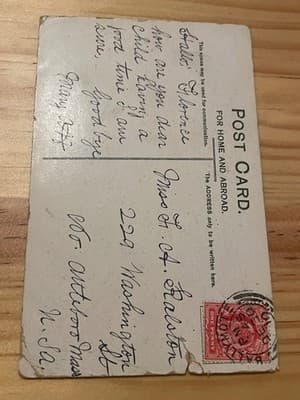 POST CARD.
FOR HOME AND ABROAD.
This space may be used for communication.
The ADDRESS only to be written here.
Hallo Florence
how are you dear
child having a
good time I am
sure.
Goodbye
Mary
Miss F. A. Ralston
229 Washington
St
No Attleboro Mass
U.S.a.